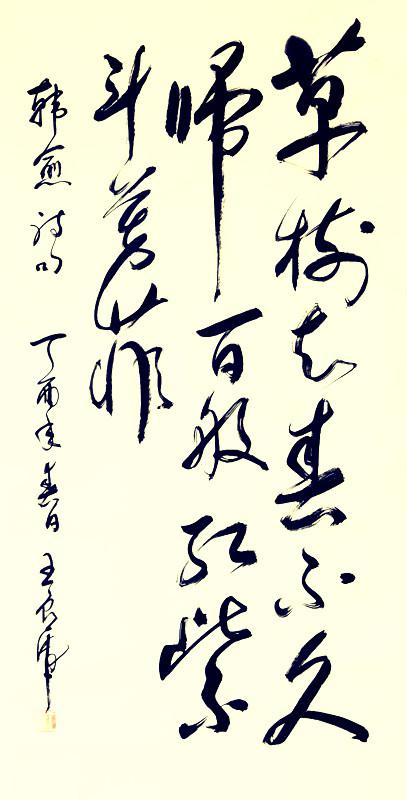 草树知春不久
帰百般红紫
斗芳菲
韩愈诗句 丁酉年春日 王